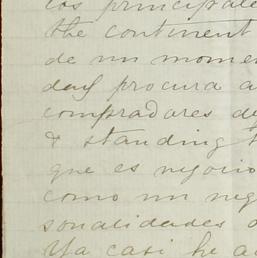 los principale
the continent
de un momen
day procura a
compradores de
& standing
que es negocio
como un neg
sonalidades
Ya casi he a